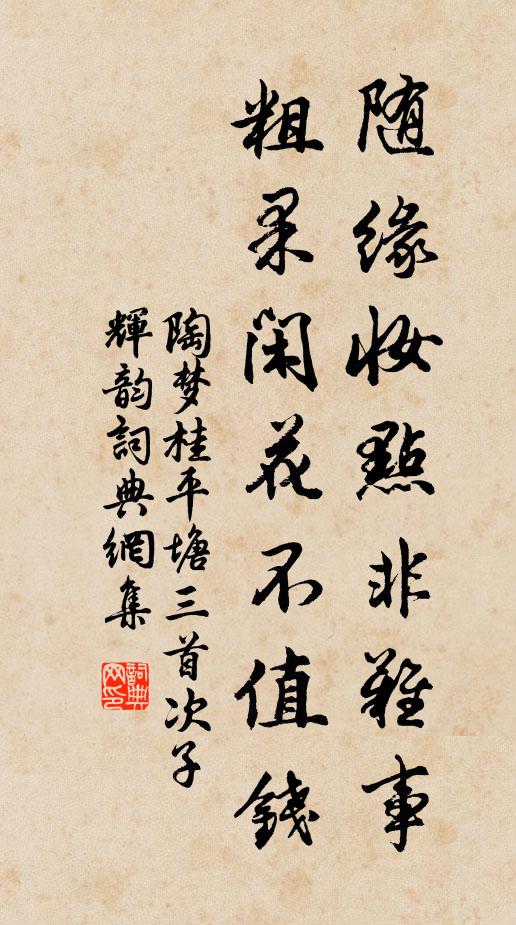 随缘妆點非難事
粗果闲花不值錢
陶梦桂平塘三首次子
輝韵詞典網集
詞典网印